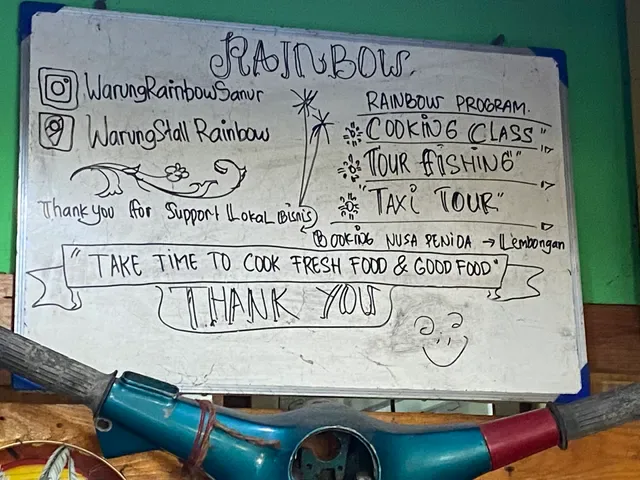 RAINBOW.
WarungRainbowSanur
WarungStall Rainbow
Thank you for Support Lokal Bisnis
RAINBOW PROGRAM.
COOKING CLASS"
TOUR FISHING"
"TAXI TOUR"
BOOKING NUSA PENIDA → Lembongan
"TAKE TIME TO COOK FRESH FOOD & GOOD FOOD"
THANK YOU